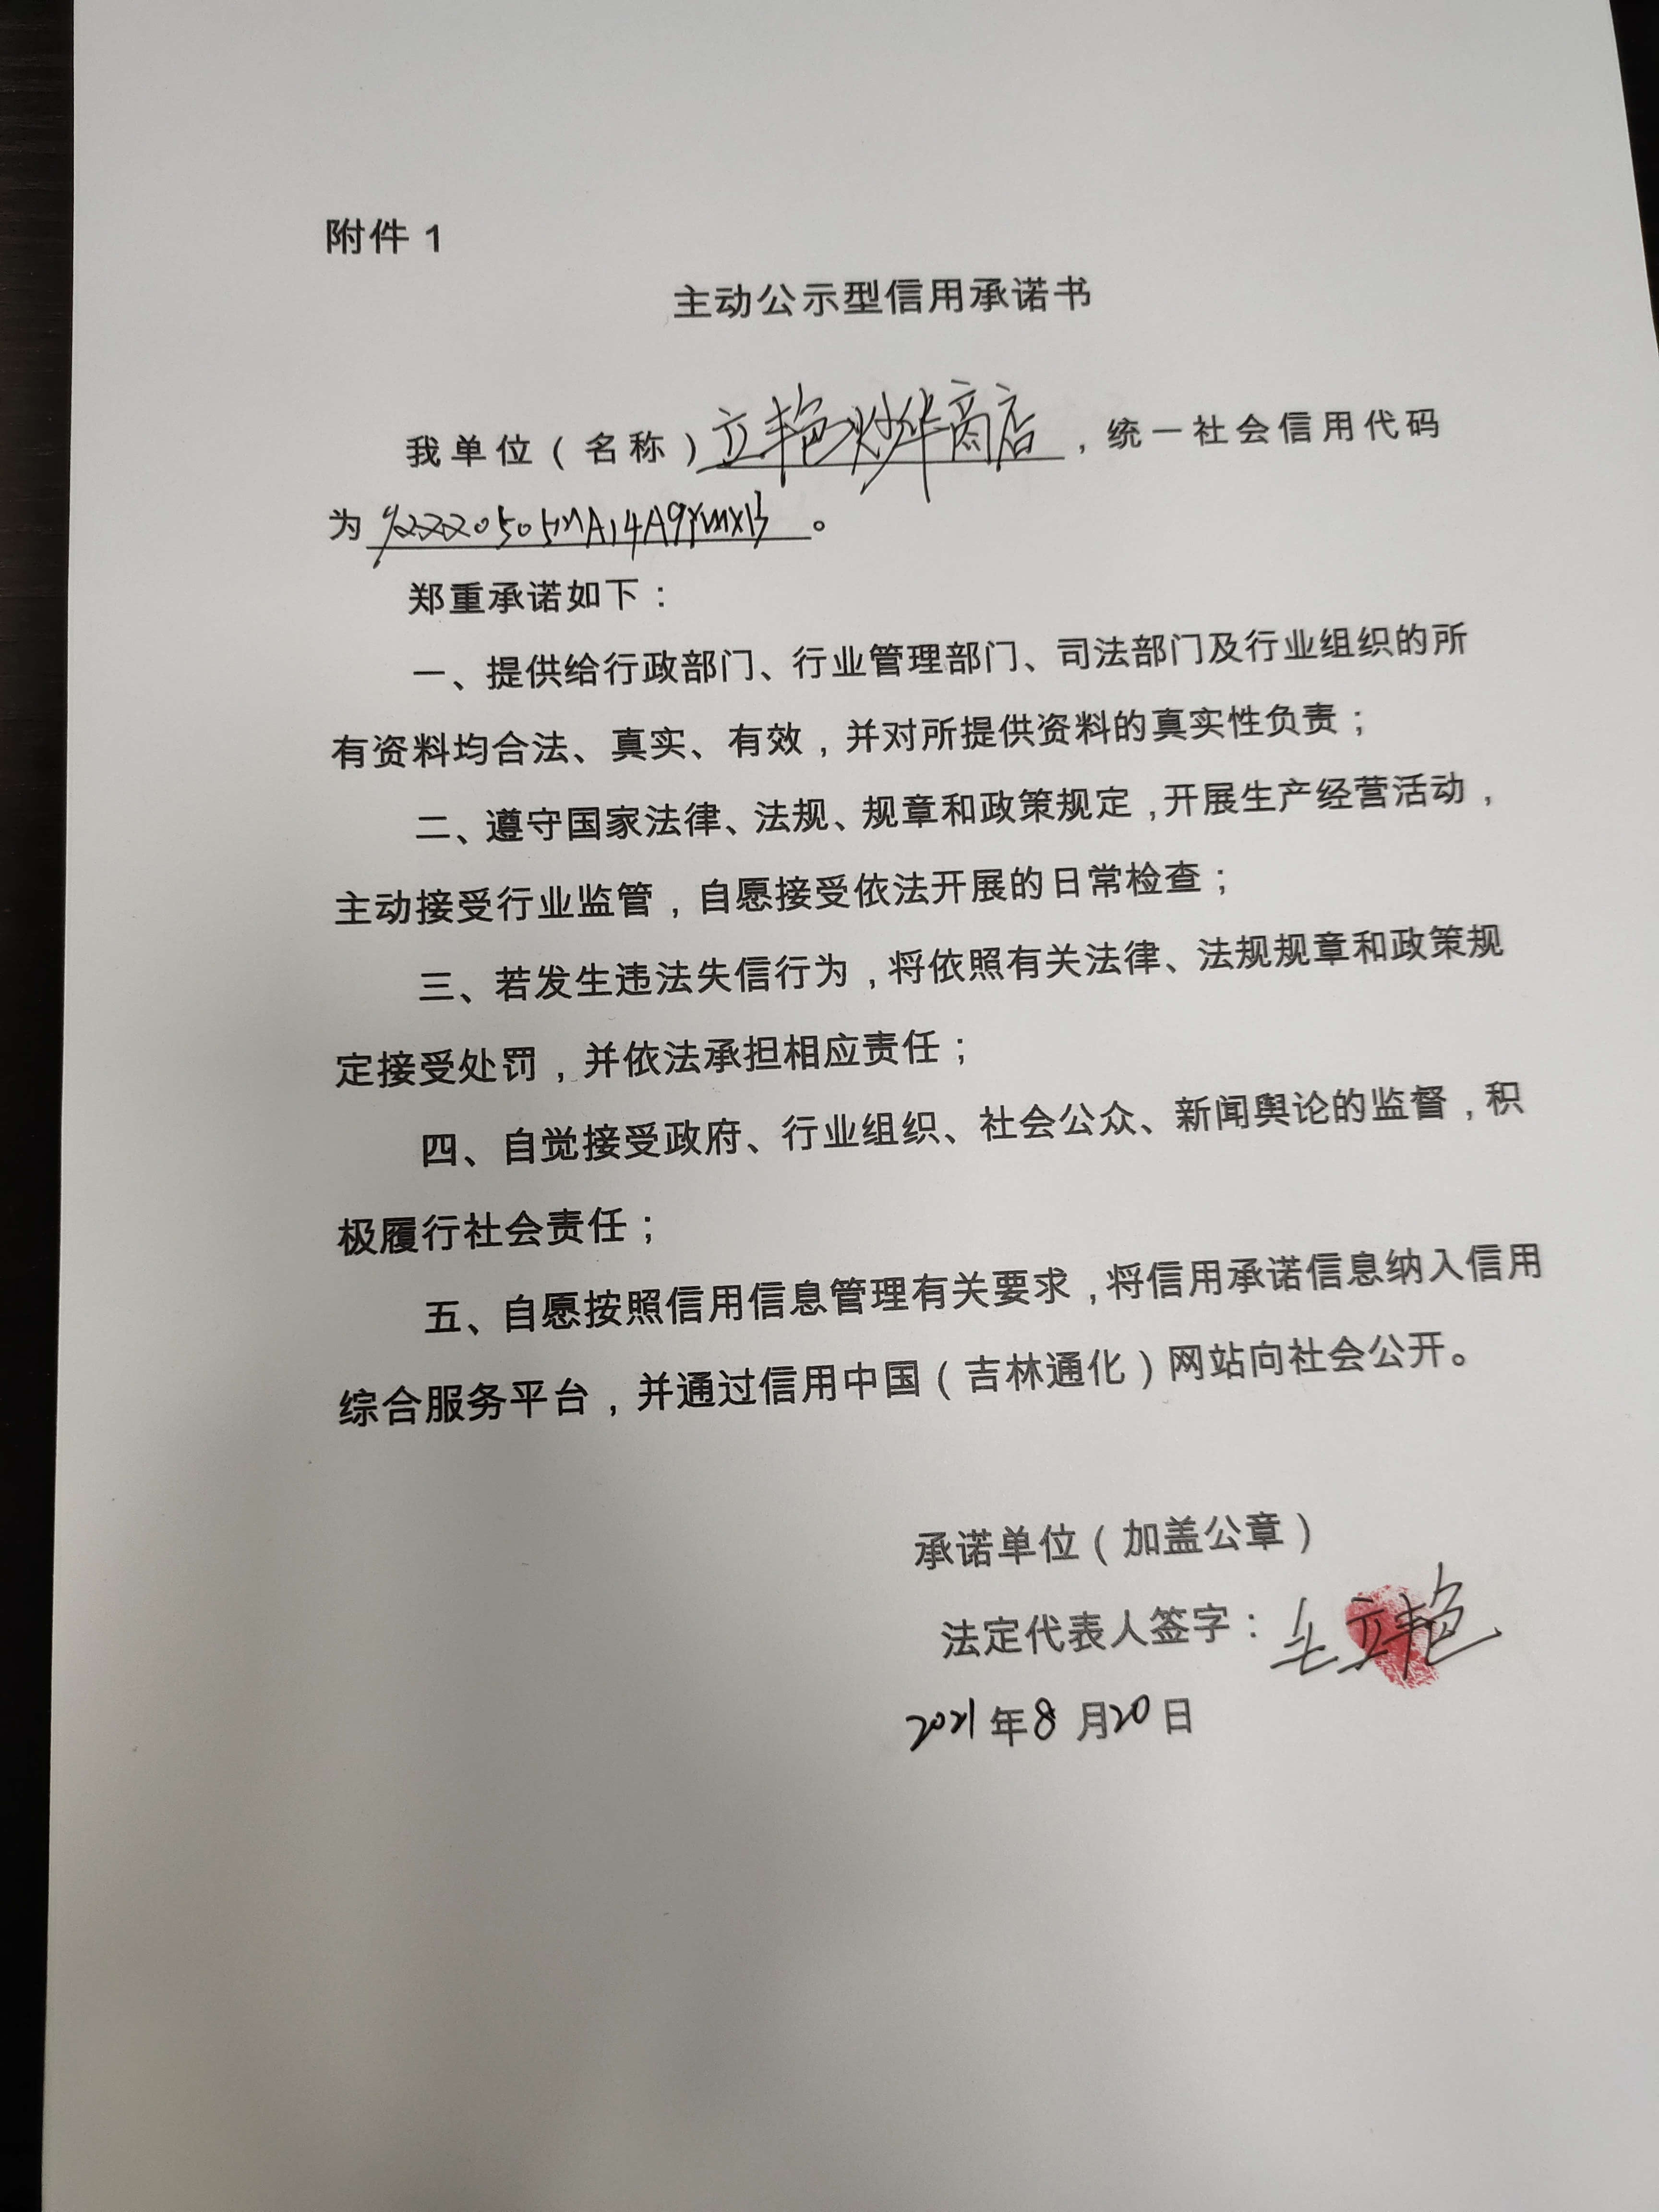 附件 1
主动公示型信用承诺书
我单位（名称）立艳炒华商店，统一社会信用代码
为92220505MA14A9YMX13。
郑重承诺如下：
一、提供给行政部门、行业管理部门、司法部门及行业组织的所
有资料均合法、真实、有效，并对所提供资料的真实性负责；
二、遵守国家法律、法规、规章和政策规定，开展生产经营活动，
主动接受行业监管，自愿接受依法开展的日常检查；
三、若发生违法失信行为，将依照有关法律、法规规章和政策规
定接受处罚，并依法承担相应责任；
四、自觉接受政府、行业组织、社会公众、新闻舆论的监督，积
极履行社会责任；
五、自愿按照信用信息管理有关要求，将信用承诺信息纳入信用
综合服务平台，并通过信用中国（吉林通化）网站向社会公开。
承诺单位（加盖公章）
法定代表人签字：立艳
2021年8月20日